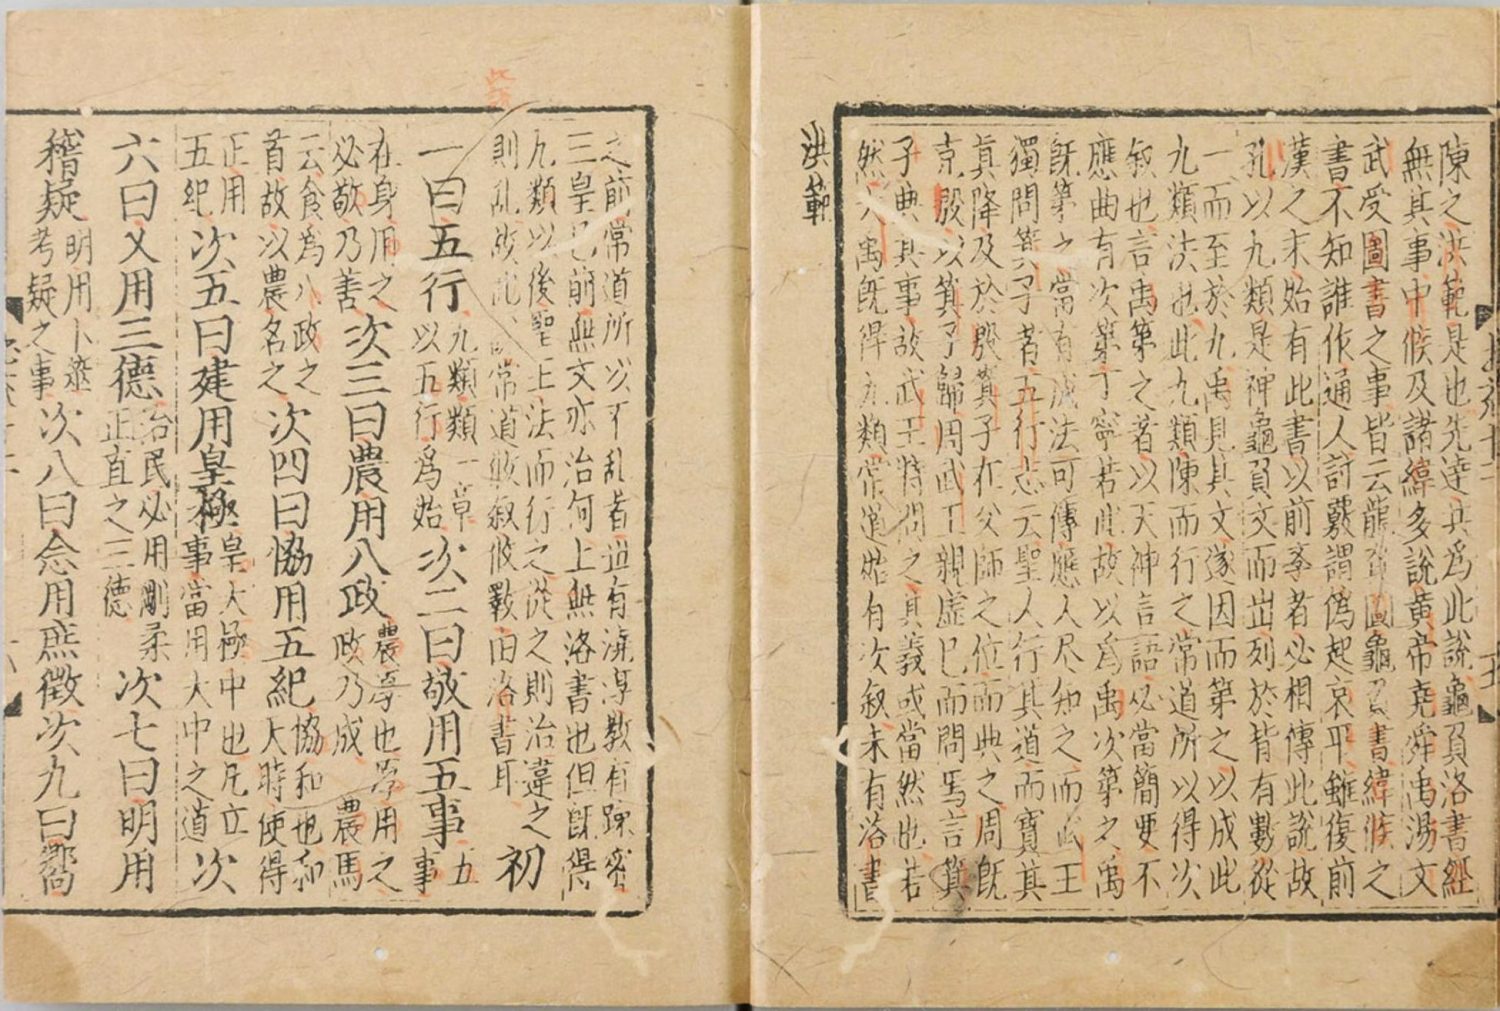 陳之洪範是也先達共爲此說龜負洛書經
無其事中候及諸緯多說黃帝堯舜禹湯文
武受圖書之事皆云龍負圖龜負書緯候之
書不知誰作通人討覈謂僞起哀平雖復前
漢之末始有此書以前學者必相傳此說故
孔以九類是神龜負文而出列於背有數從
一而至於九禹見其文遂因而第之以成此
九類法也此九類陳而行之常道所以得次
敘也言禹第之者以天神言語必當簡要不
應曲有次第丁寧若此故以爲禹次第之禹
旣第之當有成法可傳應人尽知之而武王
獨問箕子者五行志云聖人行其道而寶其
眞降及於殷箕子在父師之位而典之周旣
克殷以箕子歸周武王親虛己而問焉言箕
子典其事故武王特問之其義或當然也若
然大禹旣得九類常道始有次敘未有洛書
洪範
之前常道所以不亂者世有澆淳教有疎密
三皇已前無文亦治何止無洛書也但旣得
九類以後聖王法而行之從之則治違之
則亂故此說常道攸敘攸斁由洛書耳
初
一曰五行
九類類一章
以五行爲始
次二曰敬用五事
五
事
在身用之
必敬乃善
次三曰農用八政
農厚也厚用之
政乃成 農馬
云食爲八政之
首故以農名之
次四曰協用五紀
協和也和
大時使得
正用
五紀
次五曰建用皇極
皇大極中也凡立
事當用大中之道
次
六曰乂用三德
治民必用剛柔
正直之三德
次七曰明用
稽疑
明用卜筮
考疑之事
次八曰念用庶徵次九曰嚮